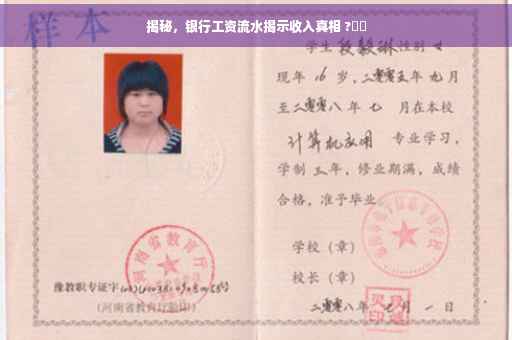 揭秘，银行工资流水揭示收入真相 ?
样本
学生 段毅琳 性别 女
现年 16 岁，二零零五年 九 月
至二零零八年 七 月在本校
计算机应用 专业学习，
学制 三 年，修业期满，成绩
合格，准予毕业
学校（章）
校长（章）
二零零八年 七 月 一 日
河南省教育厅
豫教职专证字
（河南省教育厅验印）